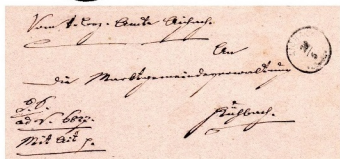 Vom k. Bez. Amte Aichach
An
die Marktgemeindeverwaltung
Kühbach.
ad N. 6827.
Mit Akt p.